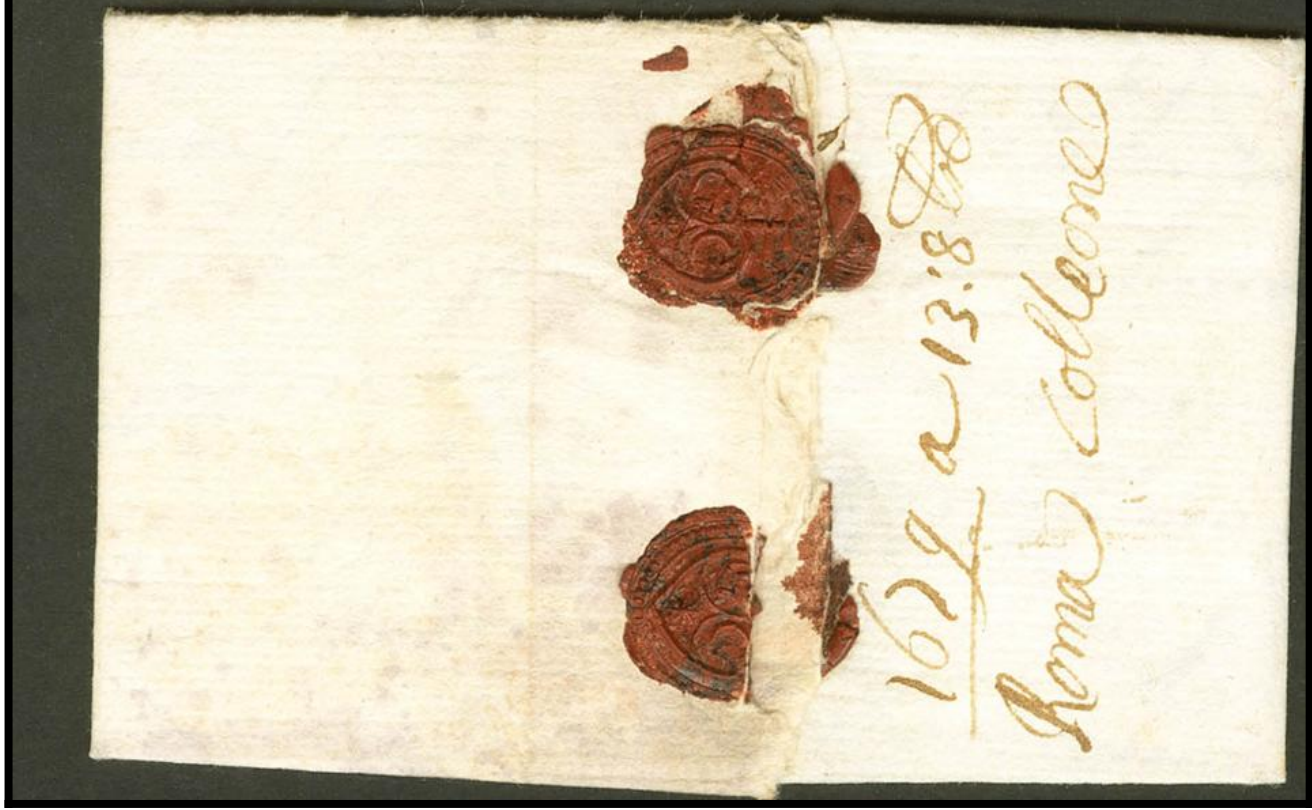 1679 a 13: 8bre
Roma Colleone